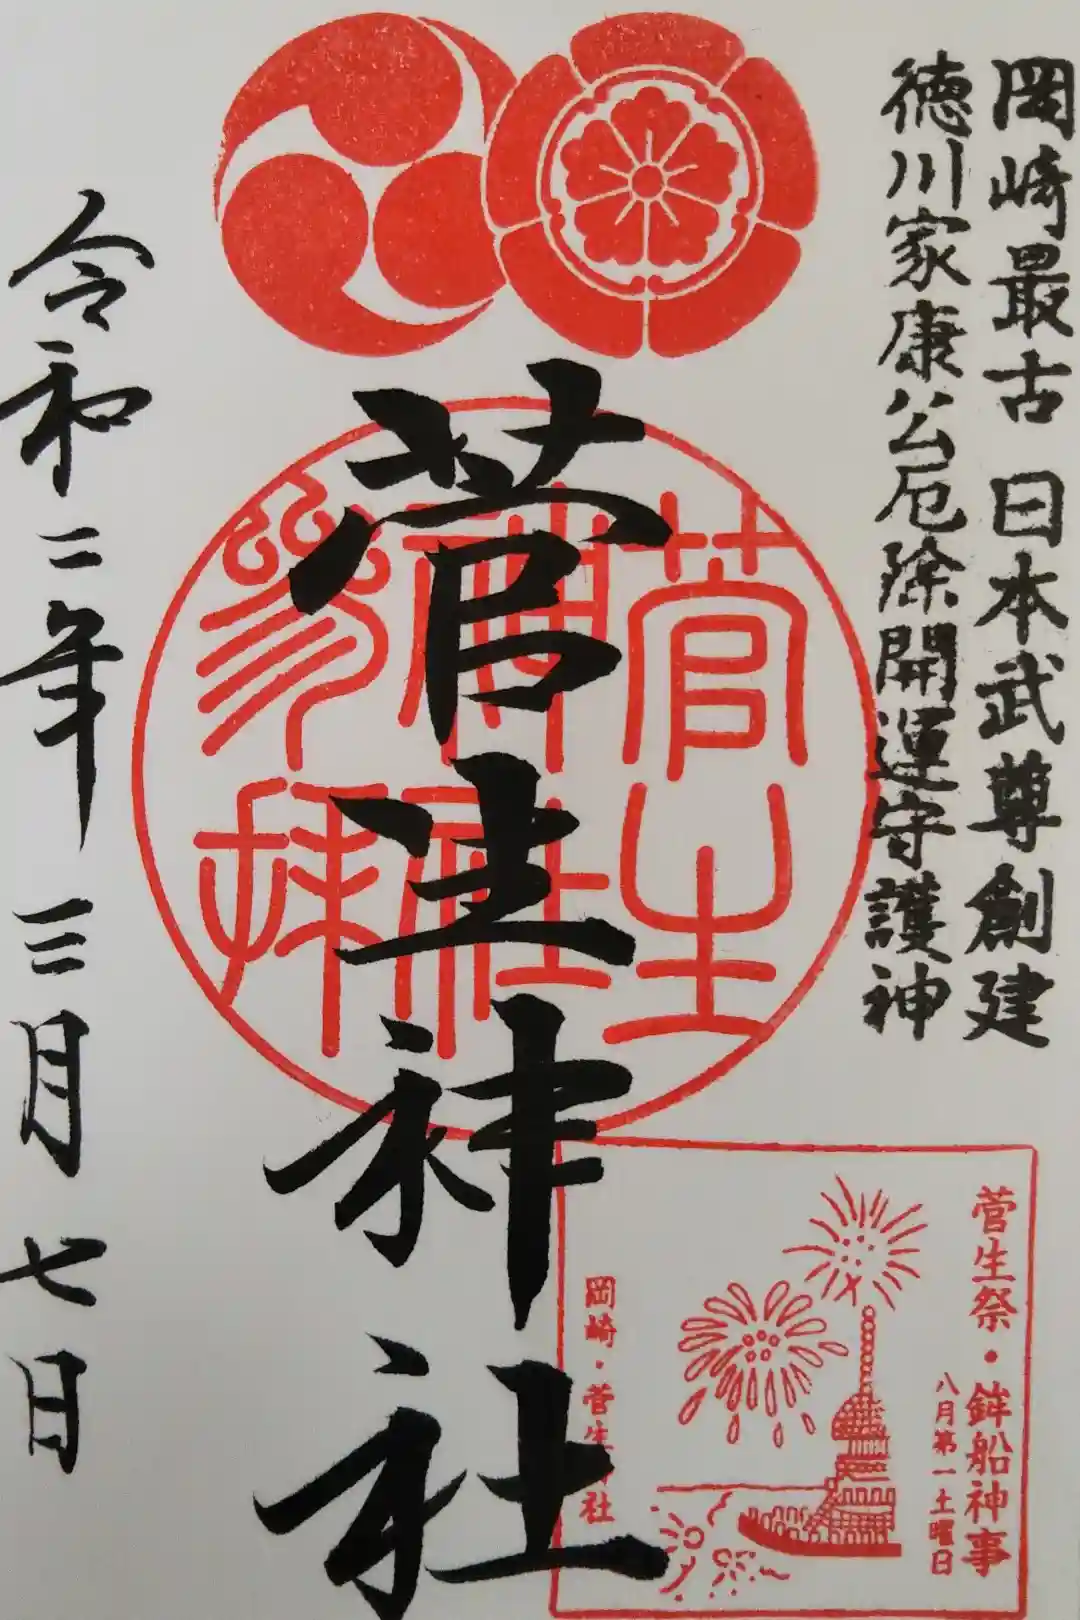 岡崎最古 日本武尊創建
徳川家康公厄除開運守護神
菅生神社
菅生
神社
参拝
令和二年 三月 七日
菅生祭・鉾船神事
八月第一土曜日
岡崎・菅生神社